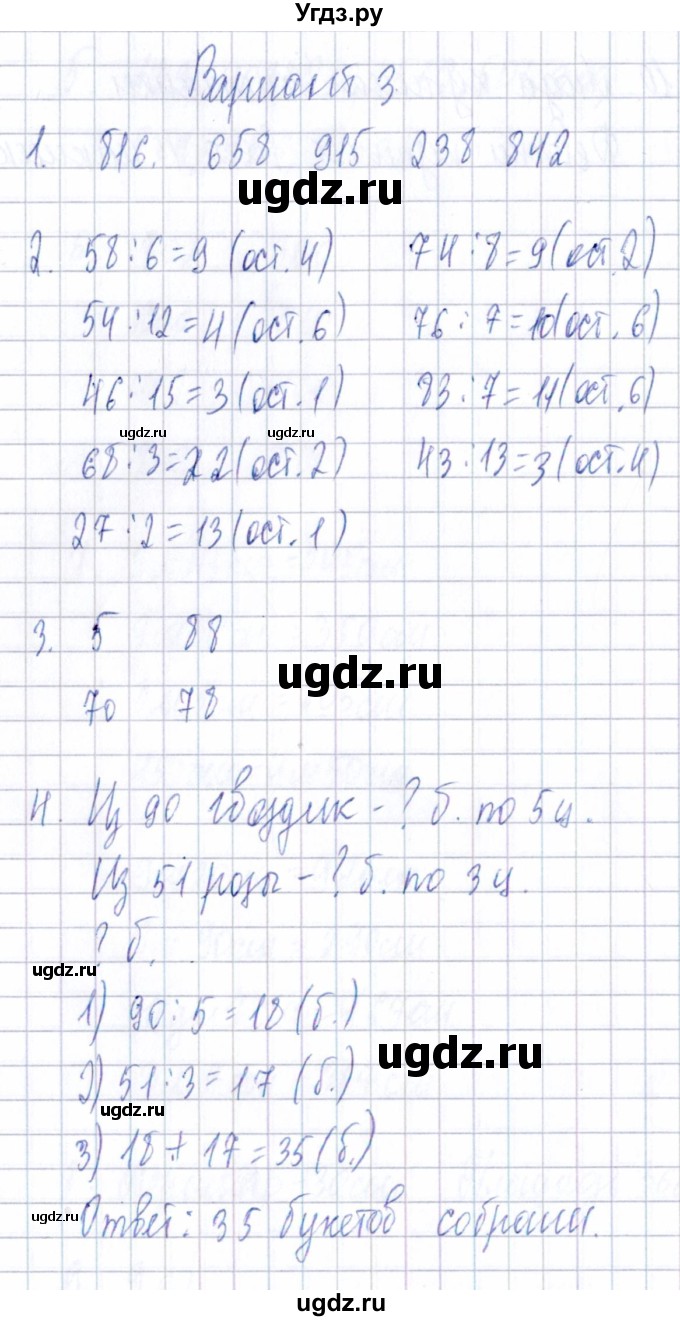 Угдз.ру
Вариант 3
1. 816. 658 915 238 842
ugdz.ru
2. 58:6=9 (ост. 4) 74:8=9(ост.2)
54:12=4(ост.6) 76:7=10(ост.6)
46:15=3(ост.1) 83:7=11(ост.6)
ugdz.ru ugdz.ru
68:3=22(ост.2) 43:13=3(ост.4)
27:2=13(ост.1)
3. 5 88
ugdz.ru
70 78
4. Из 90 гвоздик - ? б. по 5 ц.
Из 51 розы - ? б. по 3 ц.
? б.
ugdz.ru
1) 90:5=18 (б.)
ugdz.ru
2) 51:3=17 (б.)
ugdz.ru
3) 18+17=35(б.)
ugdz.ru
Ответ: 35 букетов собрали.
ugdz.ru